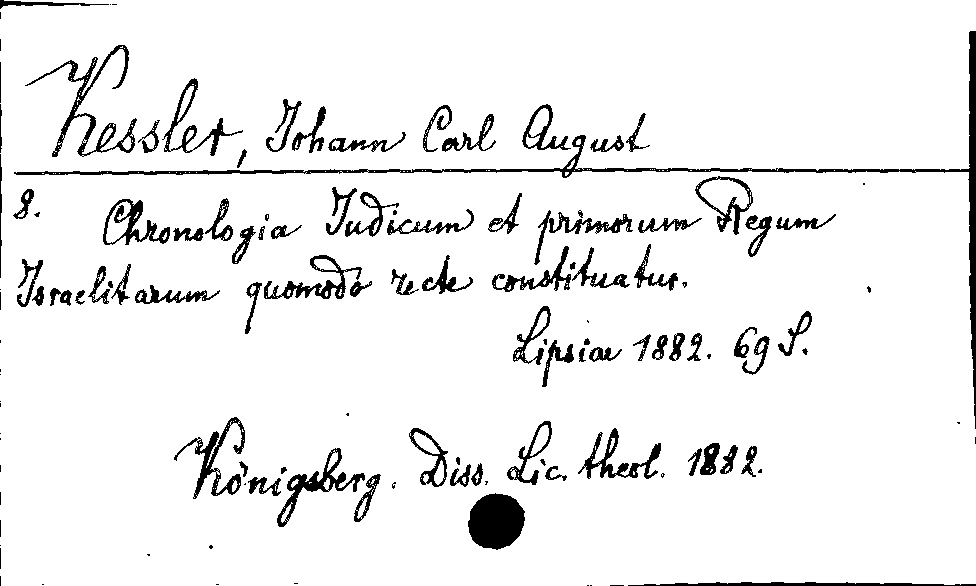 Kessler, Johann Carl August
8.
Chronologia Judicum et primorum Regum
Israelitarum quomodo recte constituatur.
Lipsiae 1882. 69 S.
Königsberg. Diss. Lic. theol. 1882.